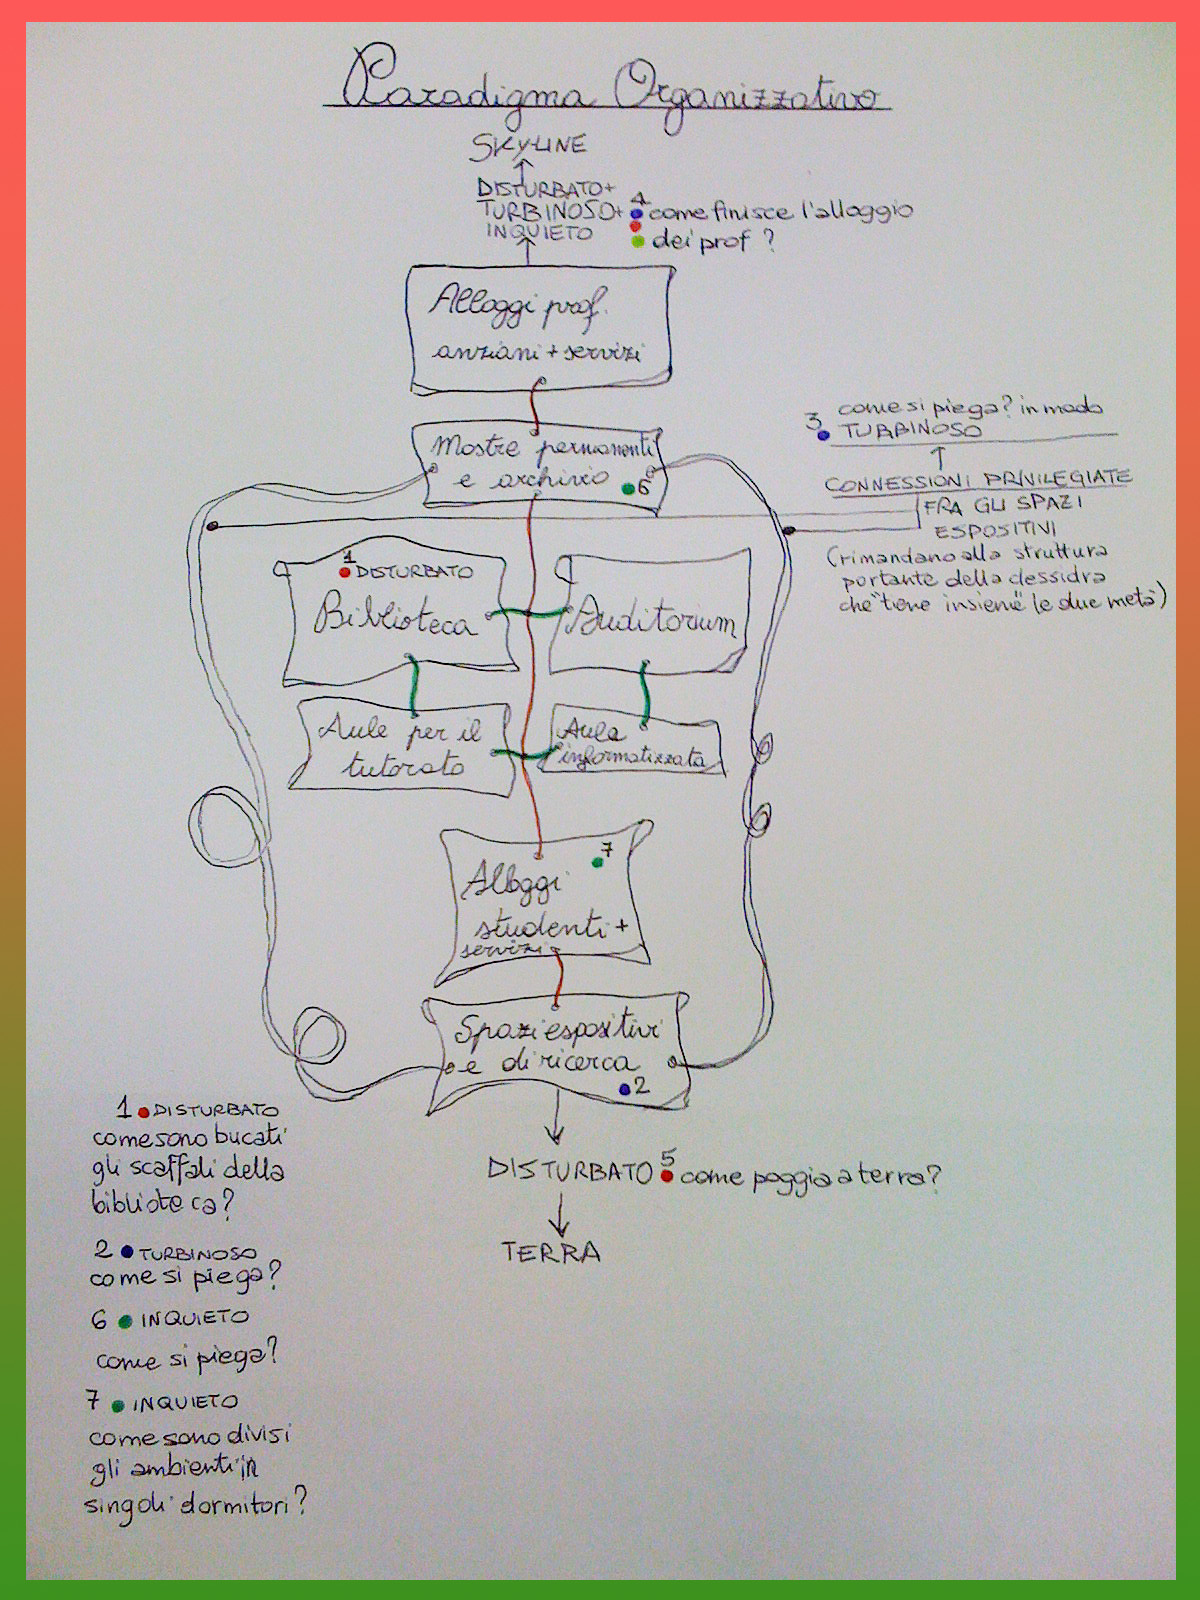 Paradigma Organizzativo
SKYLINE
DISTURBATO+
TURBINOSO+
INQUIETO
4
come finisce l'alloggio
dei prof ?
Alloggi prof.
anziani + servizi
Mostre permanenti
e archivio
6
3
come si piega? in modo
TURBINOSO
CONNESSIONI PRIVILEGIATE
FRA GLI SPAZI
ESPOSITIVI
(rimandano alla struttura
portante della clessidra
che "tiene insieme" le due metà)
1
DISTURBATO
Biblioteca
Auditorium
Aule per il
tutorato
Aula
informatizzata
7
Alloggi
studenti +
servizi
Spazi espositivi
e di ricerca
2
DISTURBATO
5
come poggia a terra?
TERRA
1 DISTURBATO
come sono bucati
gli scaffali della
biblioteca?
2 TURBINOSO
come si piega?
6 INQUIETO
come si piega?
7 INQUIETO
come sono divisi
gli ambienti in
singoli dormitori?